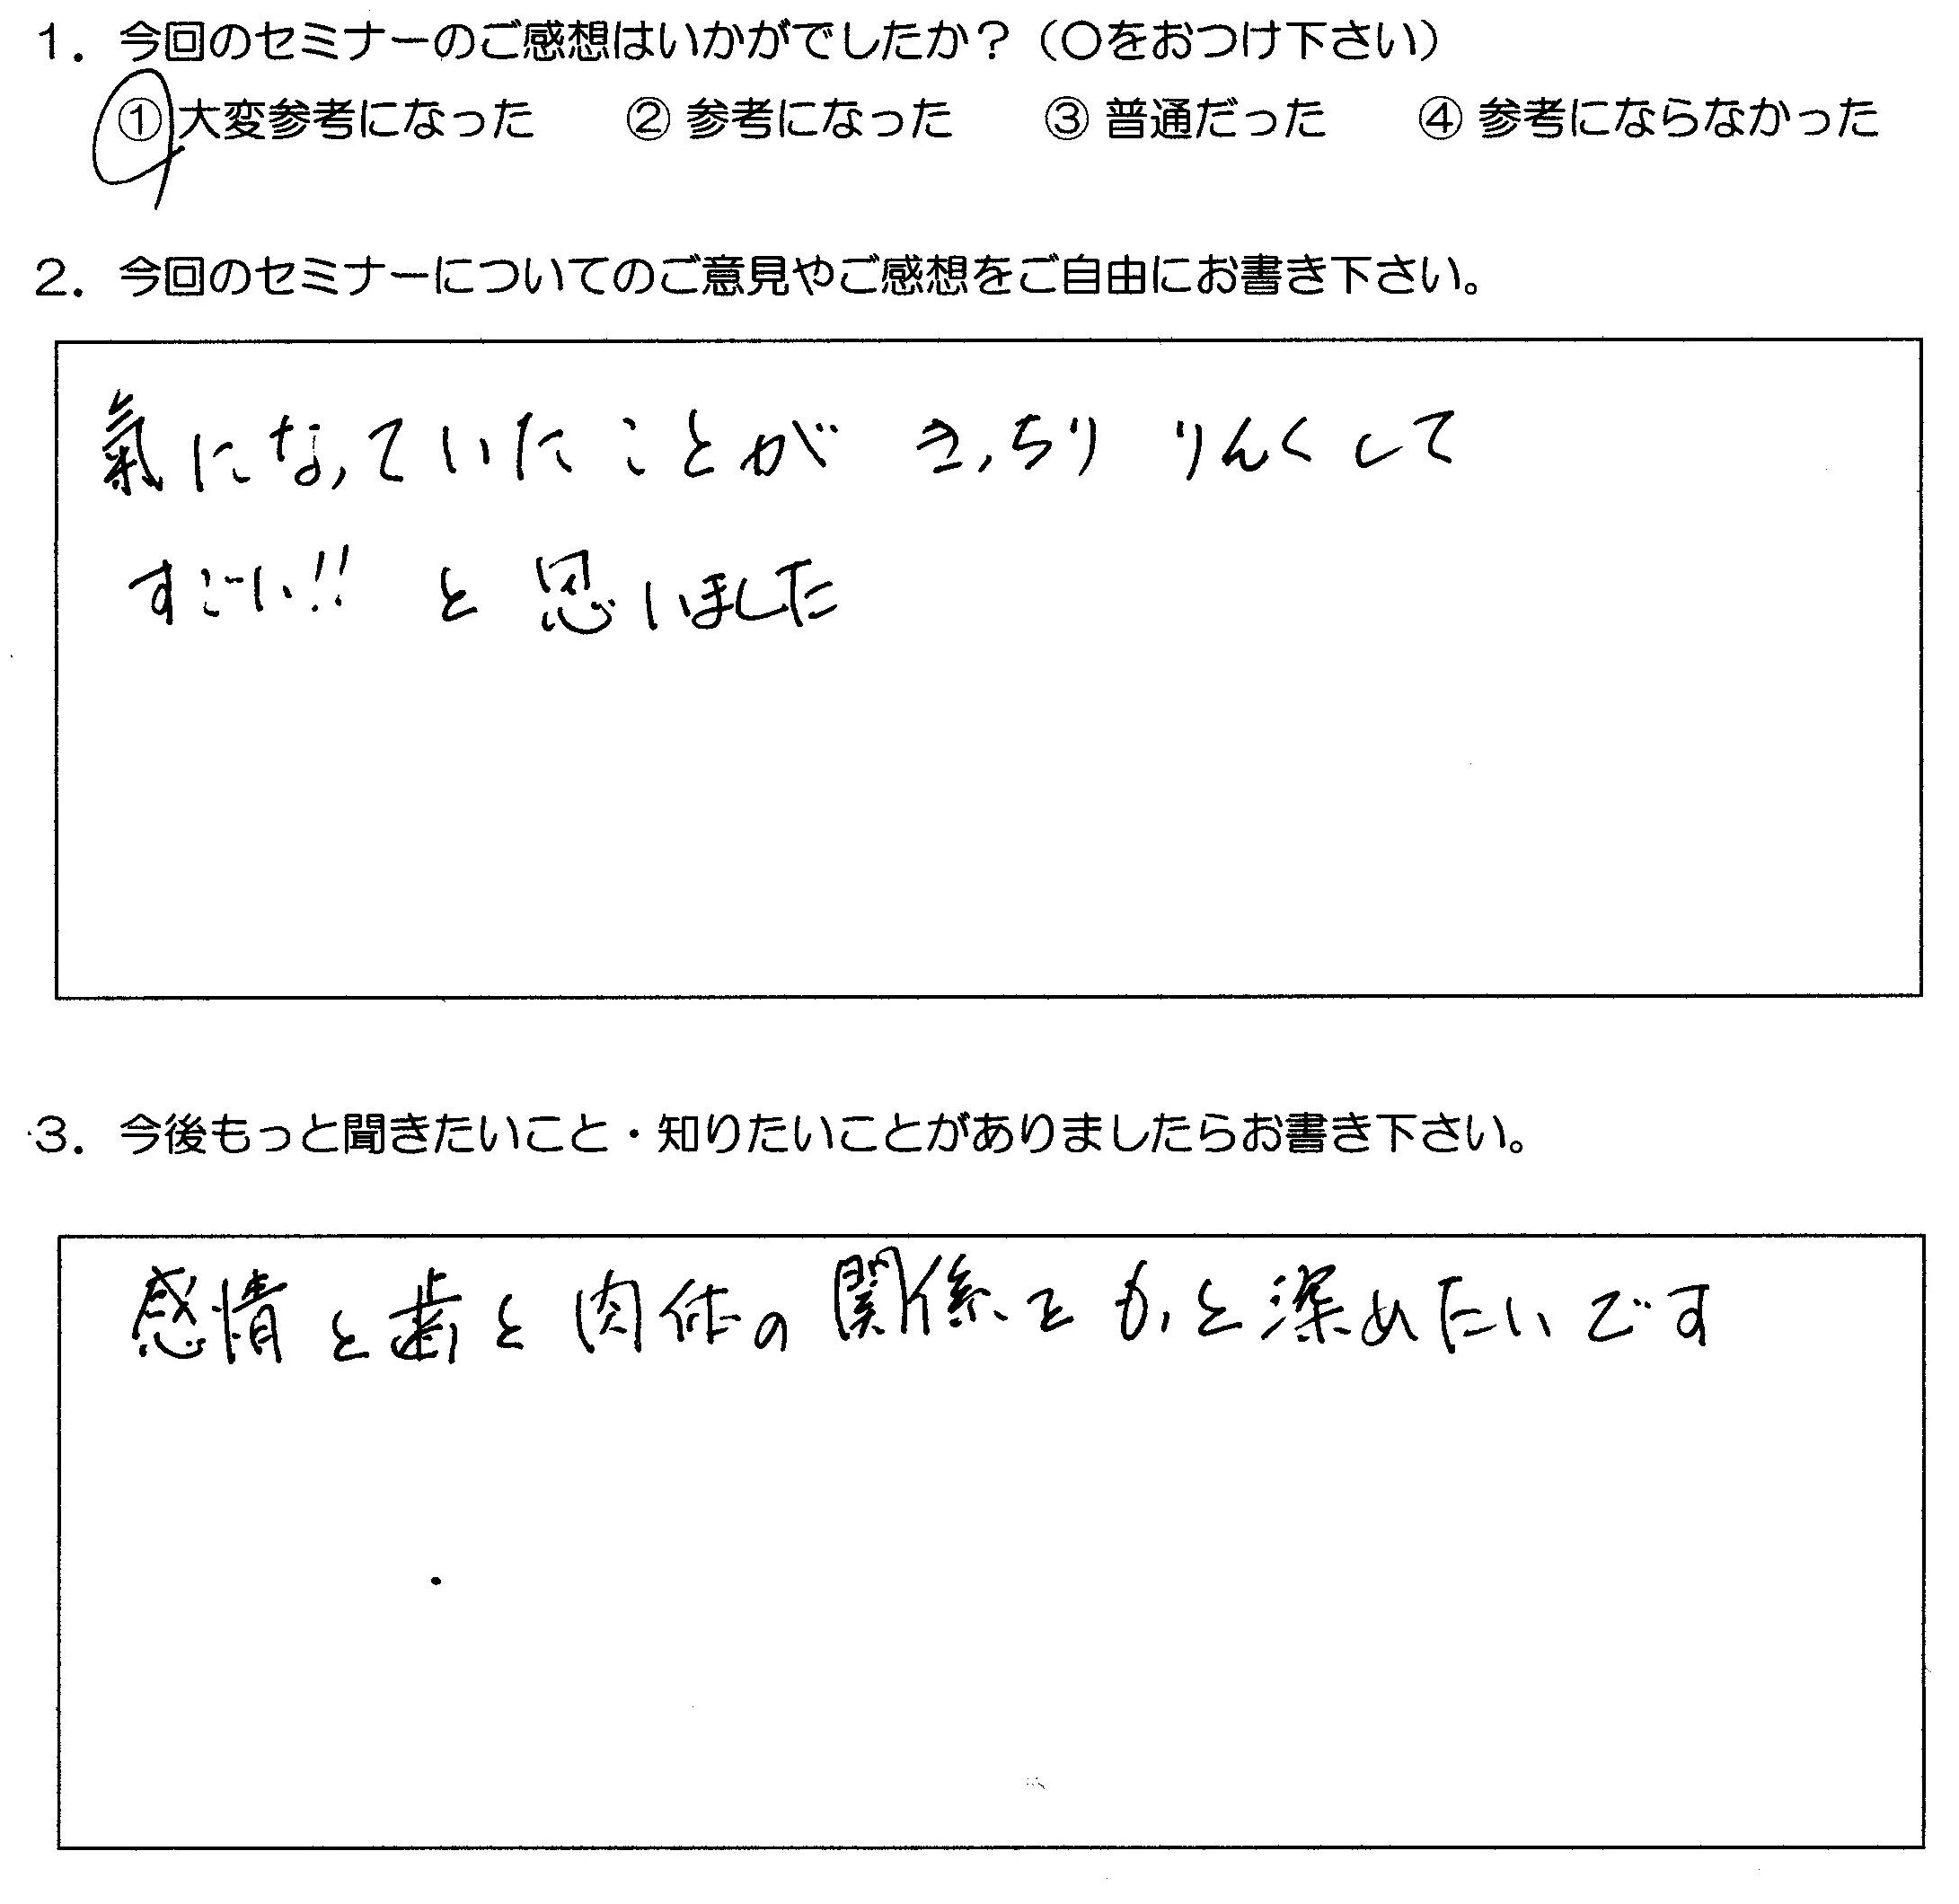 1. 今回のセミナーのご感想はいかがでしたか？（○をおつけ下さい）
① 大変参考になった　② 参考になった　③ 普通だった　④ 参考にならなかった
2. 今回のセミナーについてのご意見やご感想をご自由にお書き下さい。
氣になっていたことが きっちり りんくして
すごい!! と思いました
3. 今後もっと聞きたいこと・知りたいことがありましたらお書き下さい。
感情と歯と肉体の関係をもっと深めたいです